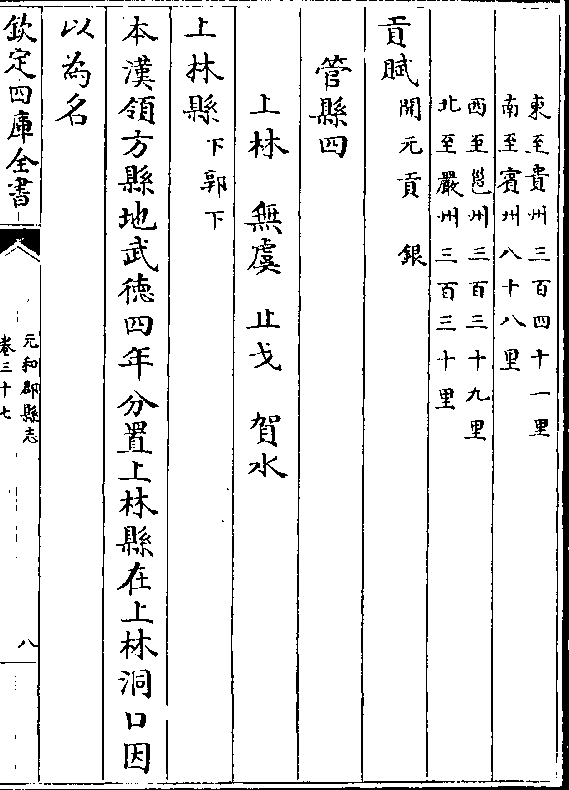 東至貴州三百四十一里
南至賓州八十八里
西至邕州三百三十九里
北至嚴州三百三十里
貢賦開元貢銀
管縣四
上林 無虞 止戈 賀水
上林縣下郭下
本漢領方縣地武徳四年分置上林縣在上林洞口因
以為名
欽定四庫全書
元和郡縣志
卷三十七
八